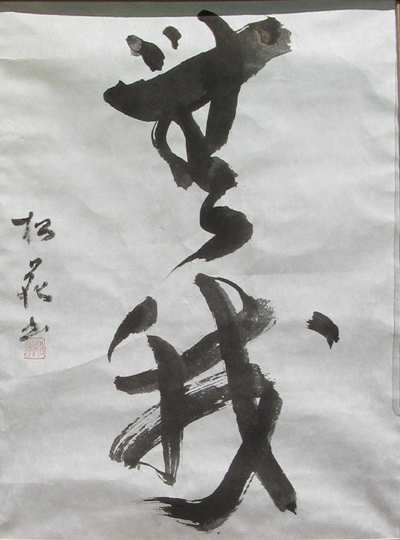 無我
松花山